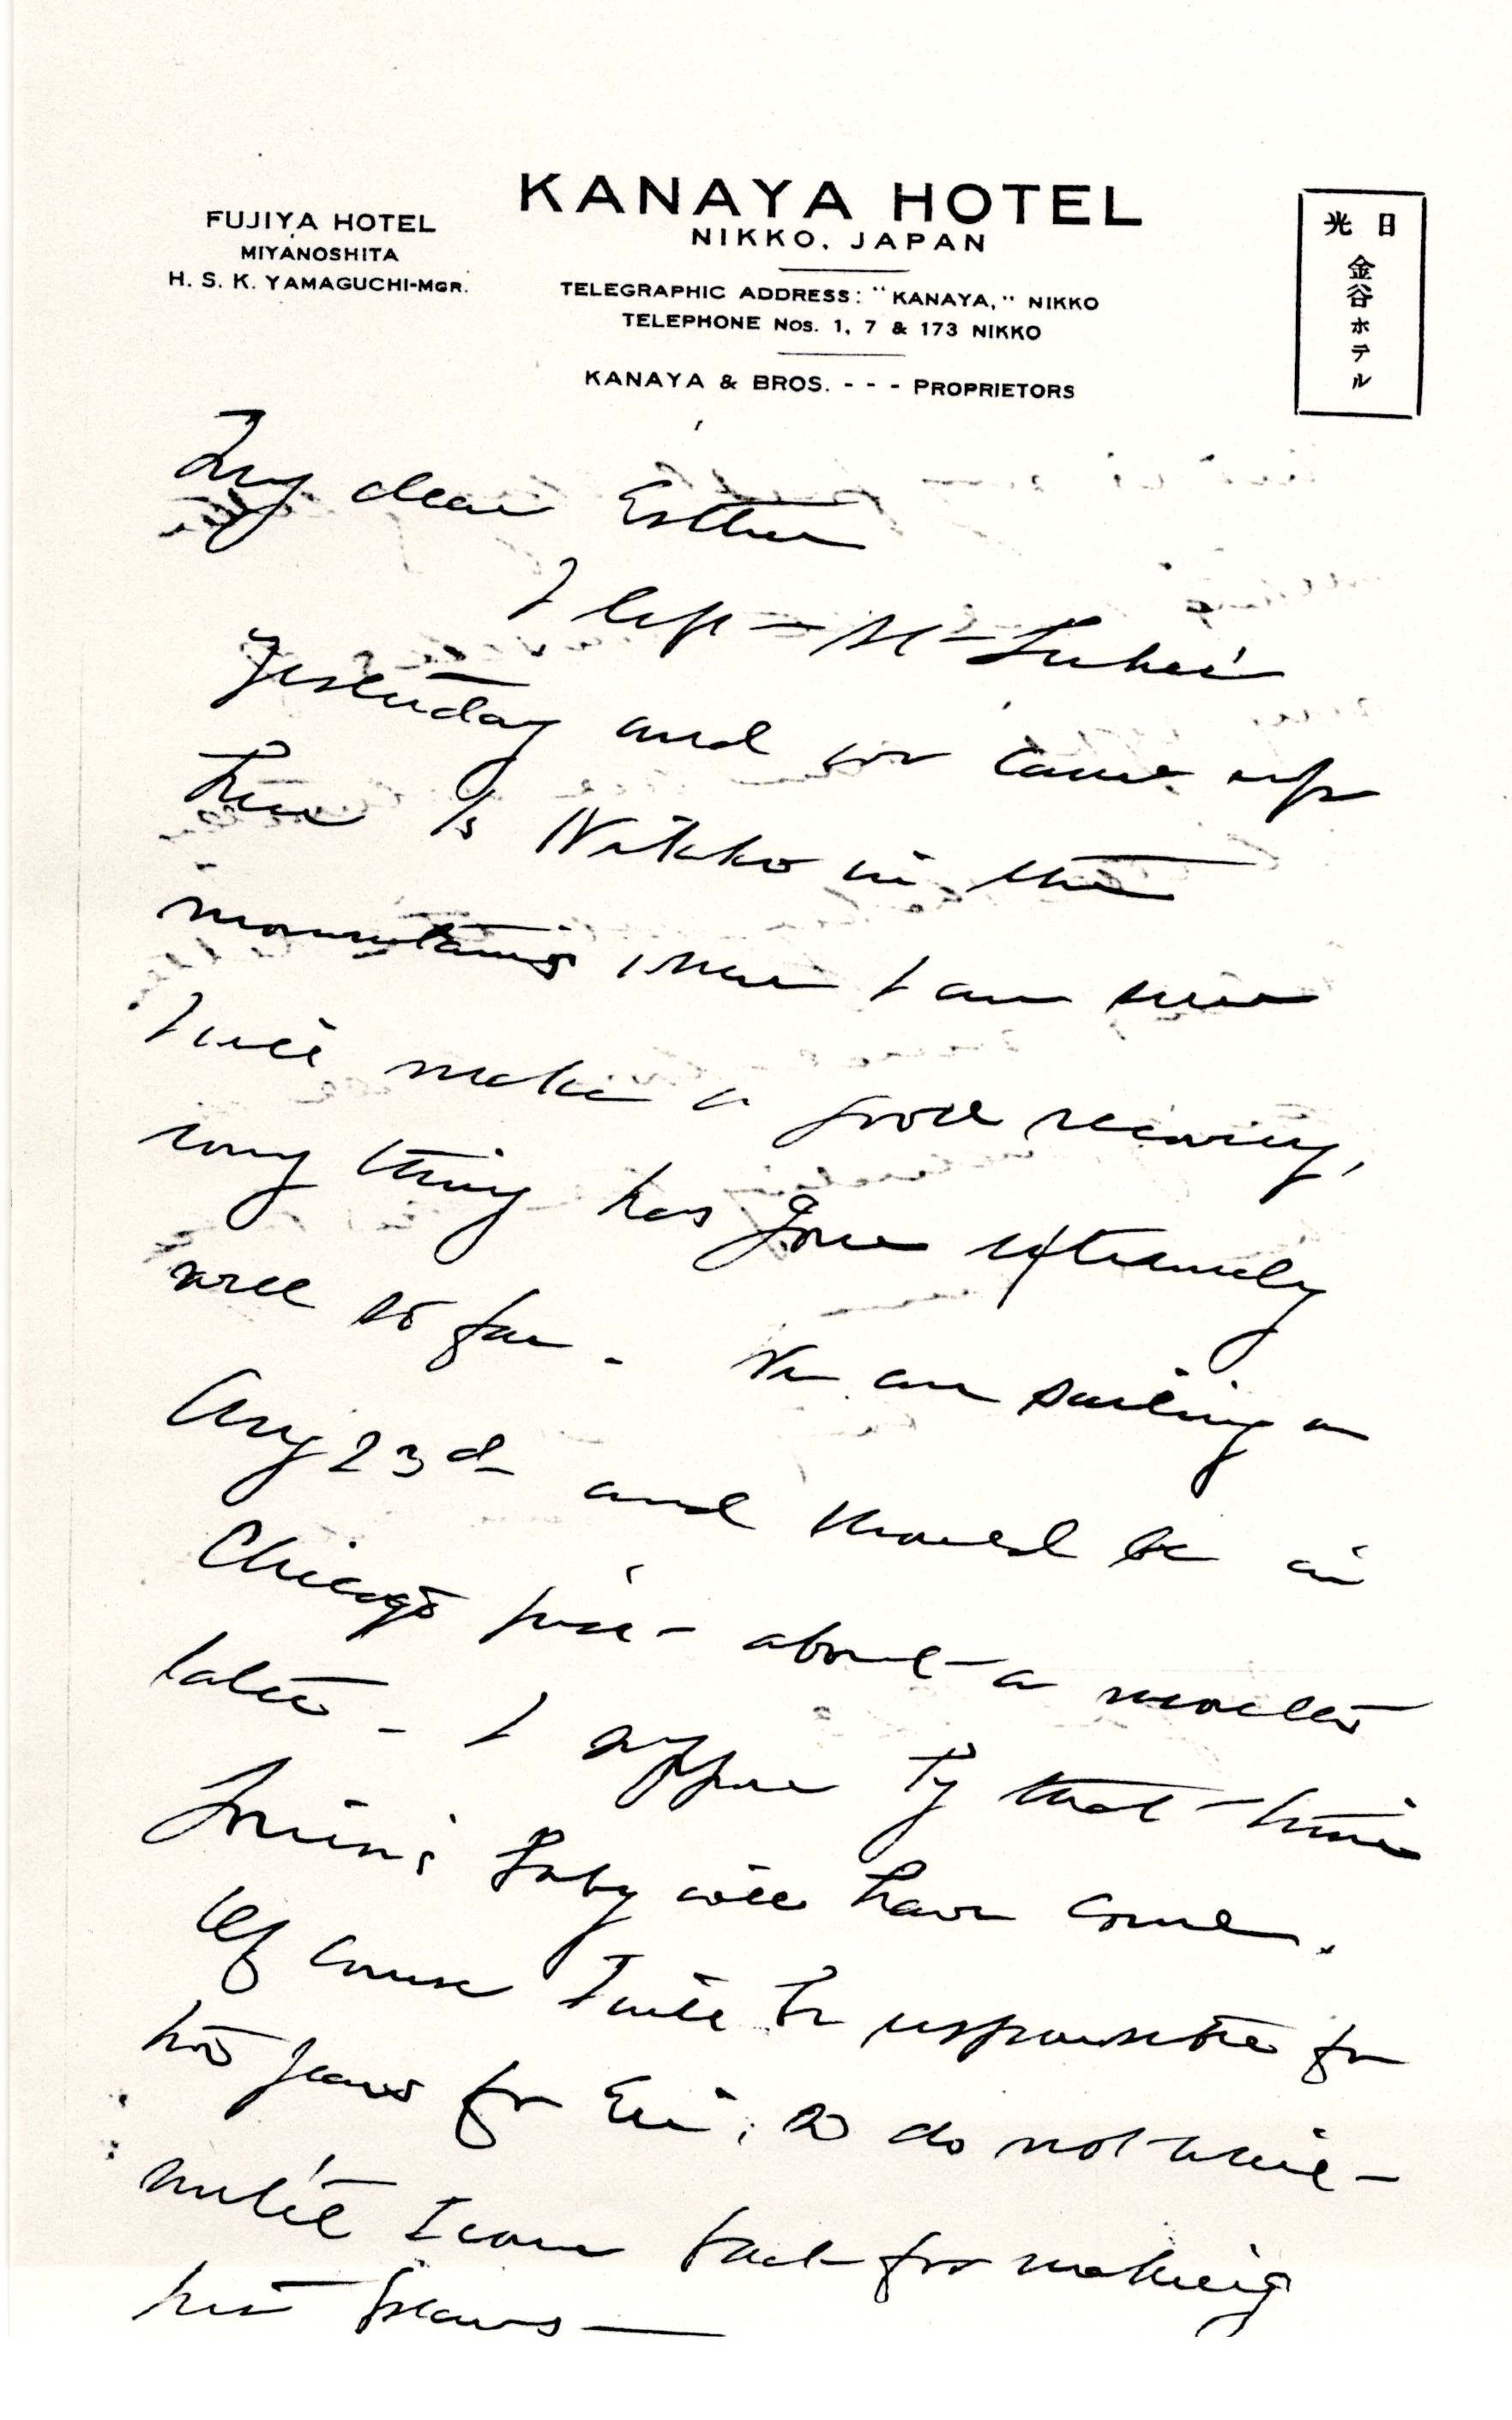 KANAYA HOTEL
NIKKO, JAPAN
FUJIYA HOTEL
MIYANOSHITA
H. S. K. YAMAGUCHI-MGR.
TELEGRAPHIC ADDRESS: "KANAYA," NIKKO
TELEPHONE NOS. 1, 7 & 173 NIKKO
KANAYA & BROS. - - - PROPRIETORS
光日
金谷ホテル
My dear Esther
I left St Luke's
yesterday and we came up
here to Nikko in the
mountains where I am sure
I will make a good recovery,
every thing has gone extremely
well so far. We are sailing on
Aug 23d and should be in
Chicago just about a month
later - I suppose by that time
baby will have come.
Of course I will be responsible for
his for so do not wait
until I come back for making
his plans —